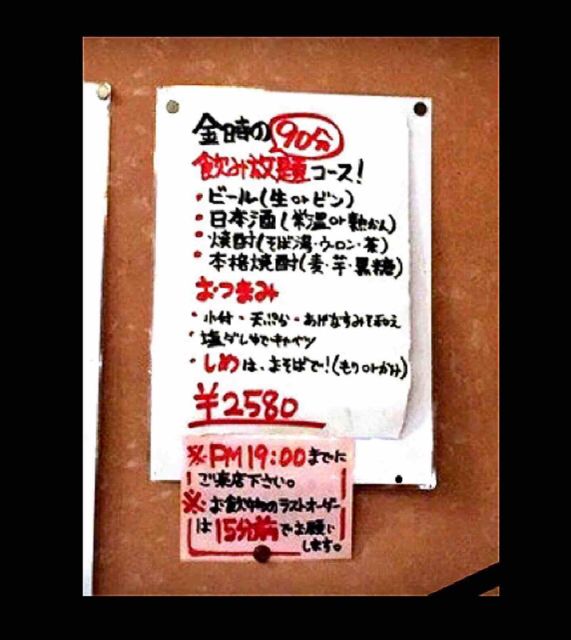 金時の90分
飲み放題コース!
・ビール(生orビン)
・日本酒(常温or熱かん)
・焼酎(そば湯・ウーロン・茶)
・本格焼酎(麦・芋・黒糖)
おつまみ
・小付・天ぷら・あげなすみそ和え
・塩ダレゆでキャベツ
・しめは、よそばで!(もりorかみ)
¥2580
※PM19:00までに
ご来店下さい。
※お飲物のラストオーダー
は15分前でお願い
します。